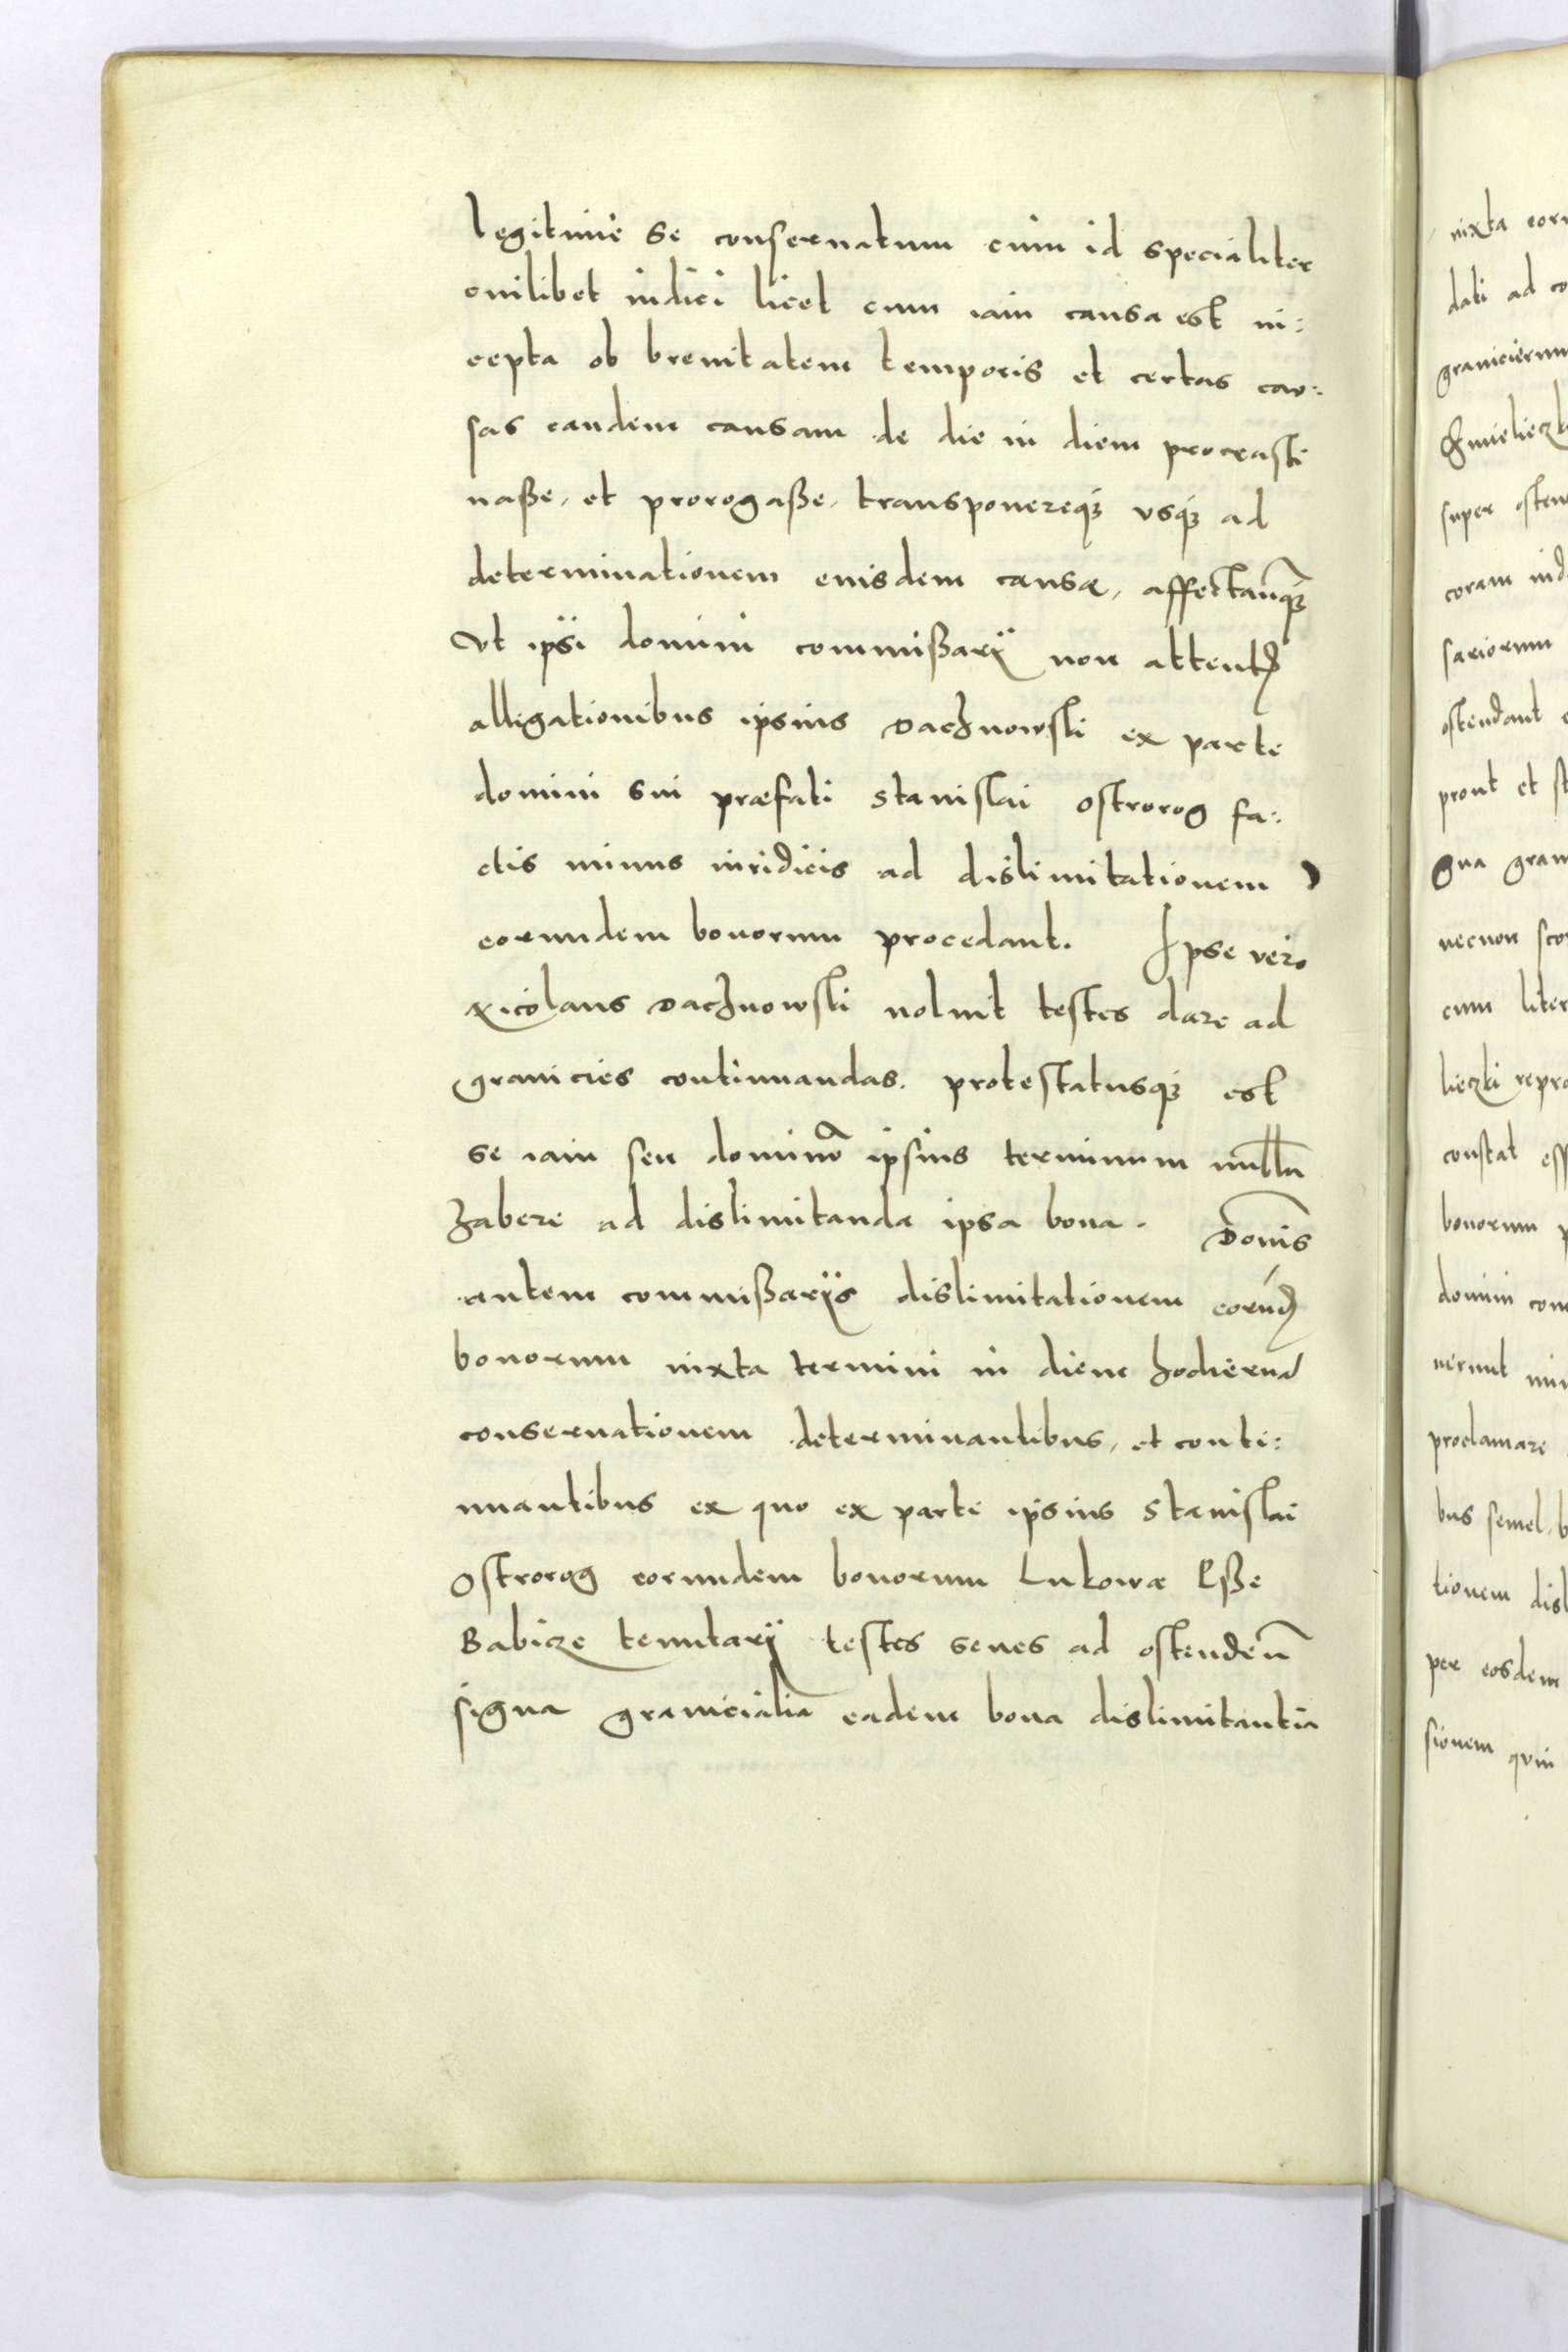 legitime se conseruatum cum id specialiter
cuilibet iudici licet cum iam causa est in:
cepta ob breuitatem temporis et certas cau:
sas eandem causam de die in diem procrasti
naße, et prorogaße, transponereq́ꝫ vsq́ꝫ ad
determinationem eiusdem causæ, affectanq́ꝫ
Vt ipsi domini commißarij non attent̃
alligationibus ipsius Dachnowski ex parte
domini sui præfati Stanislai Ostrorog fa:
ctis minus iuridicis ad dislimitationem
eorundem bonorum procedant. Ipse vero
Nicolaus Dachnowski noluit testes dare ad
granicies continuandas. protestatusq́ꝫ est
se iam seu dominũ ipsius terminum nullũ
habere ad dislimitanda ipsa bona. Dom̃is
autem commißarijs dislimitationem eorund̃
bonorum iuxta termini in diem hodiernã
conseruationem determinantibus, et conti:
nuantibus ex quo ex parte ipsius Stanislai
Ostrorog eorundem bonorum Lukowa Rße
Babicze tenutarij testes senes ad ostendeñ
signa granicialia eadem bona dislimitantia
iuxta
dati ad
granicierum
Chmieliczk
super osten
coram iud
sariorum
ostendant
prout et st
gna gran
necnon
cum liter
liczki repro
constat ess
bonorum
domini com
uerunt
proclamare
bus semel, b
tionem disl
per eosdem
sionem quin